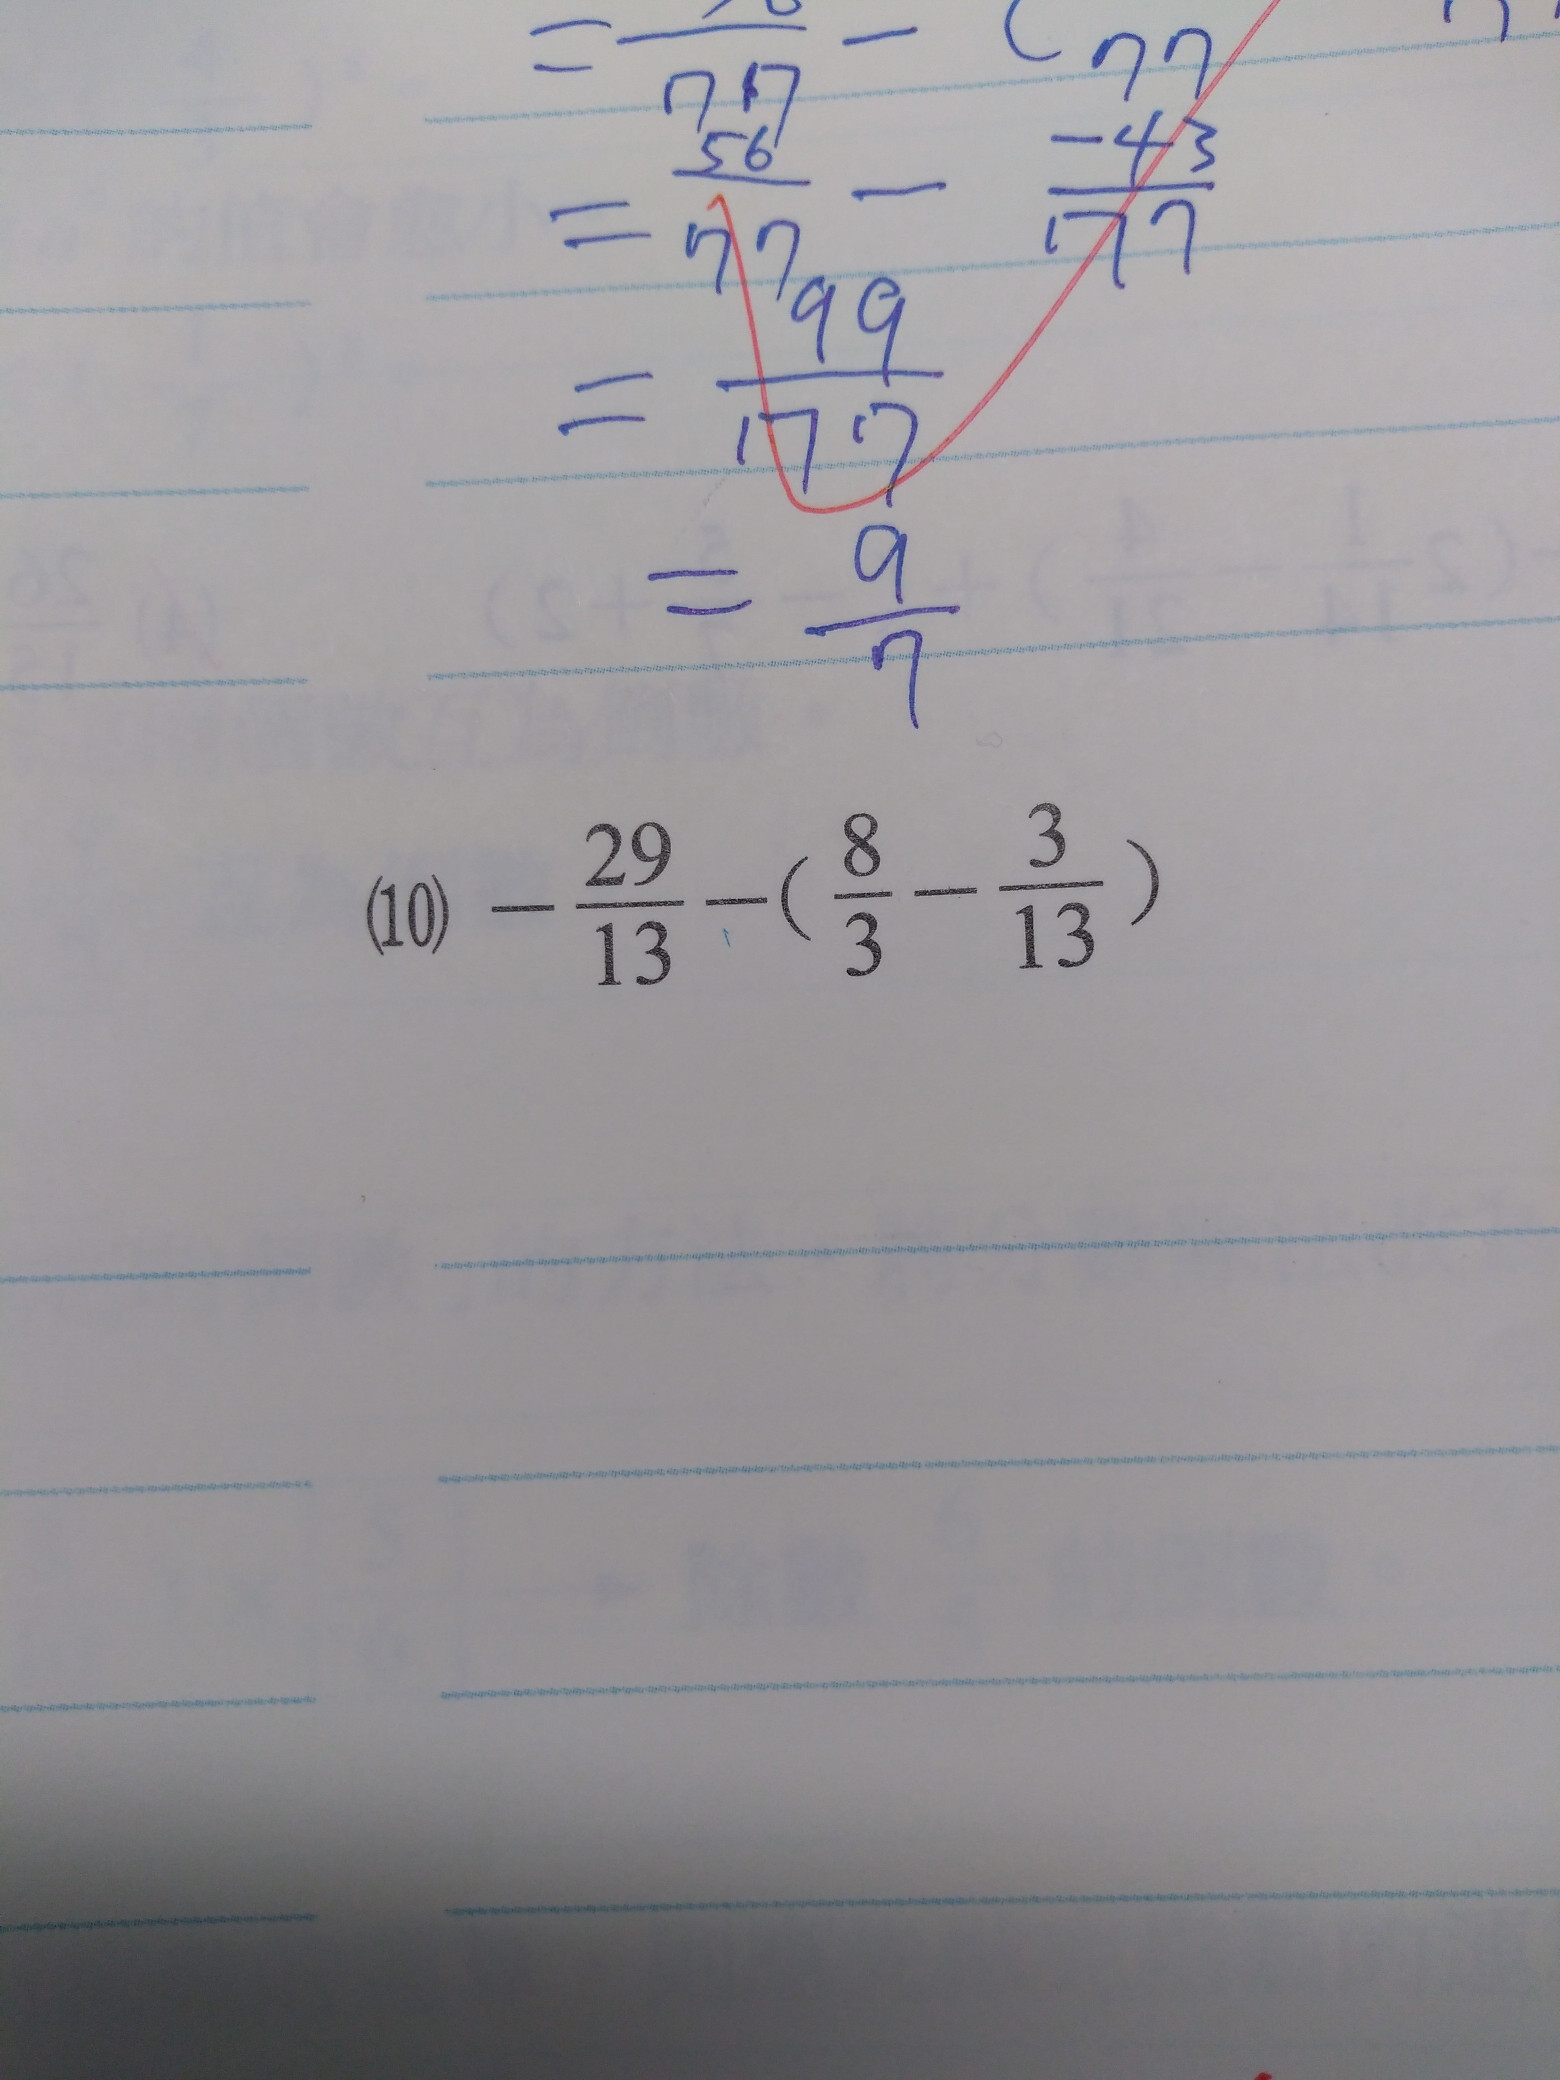 = 56/77 - ( 77
= 56/77 - -43/77
= 99/77
= 9/7
(10) - 29/13 - ( 8/3 - 3/13 )